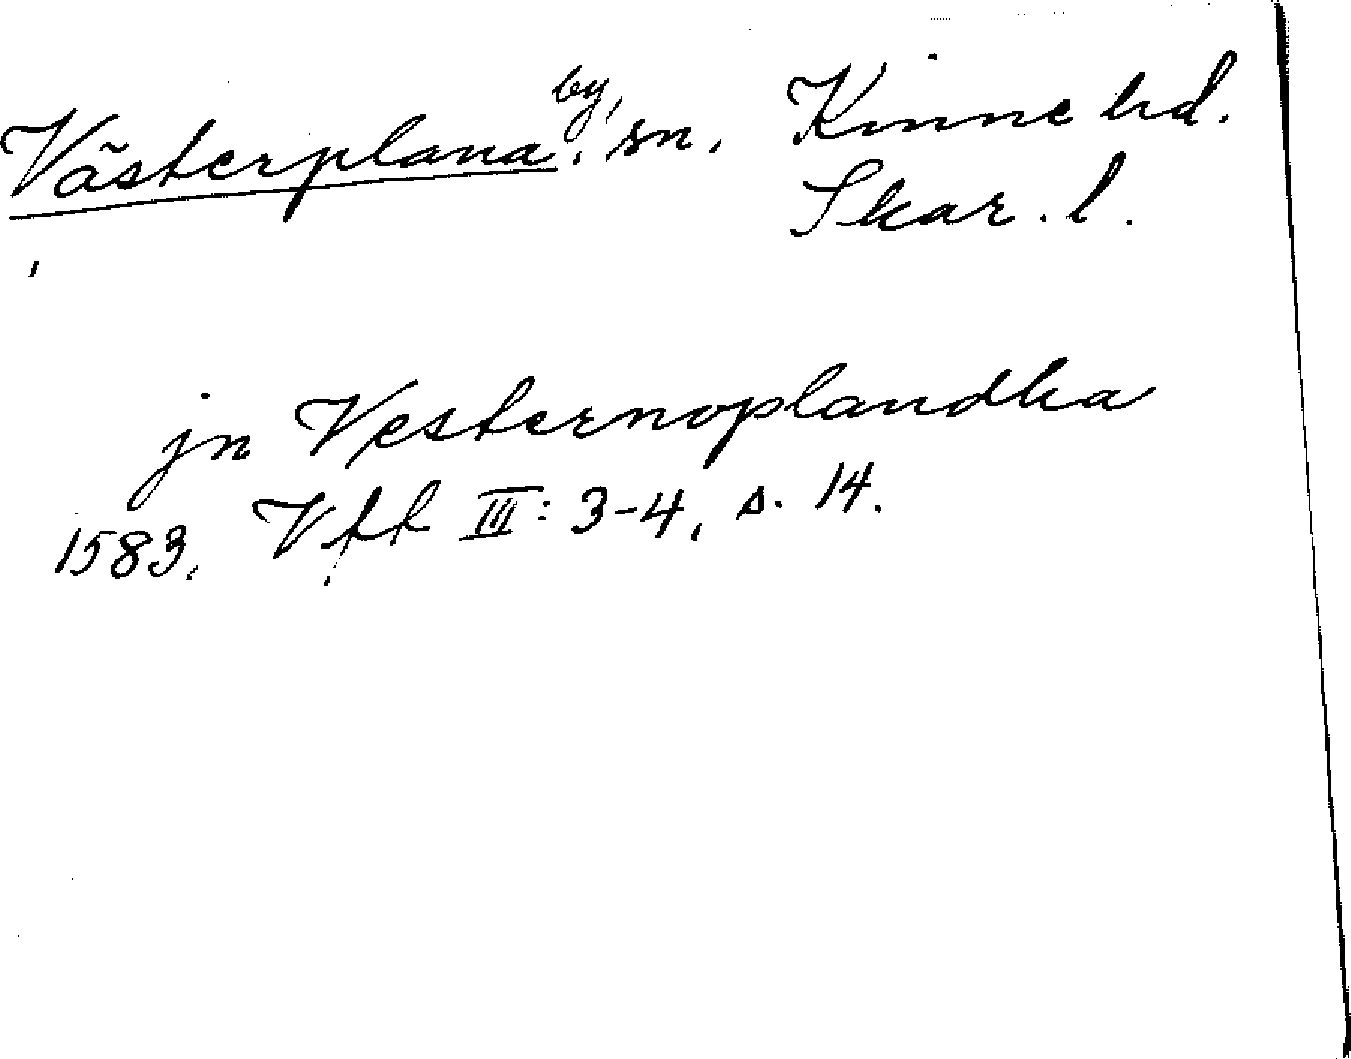 Västerplana, by, sn, Kinne hd.
Skar. l.
jn Vesternoplandha
1583. Vfk III: 3-4, s. 14.